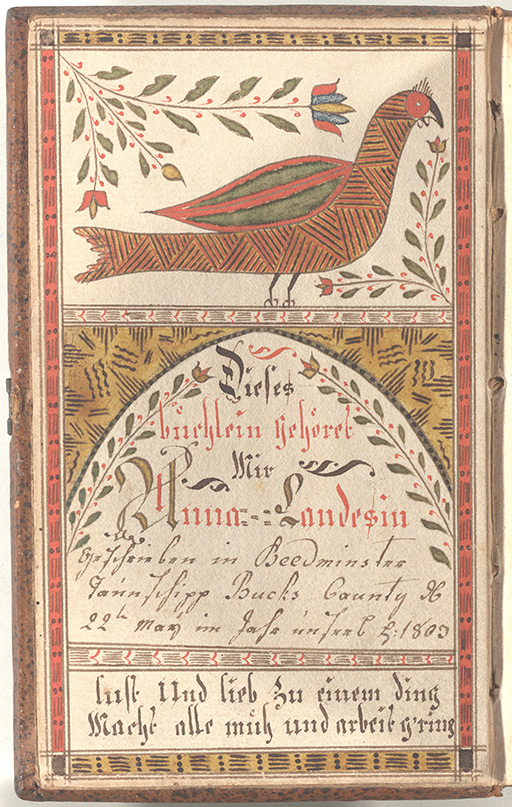 Dieses
büchlein gehöret
Mir
Anna Landesin
Geschrieben in Beedminster
Taunschipp Bucks Caunty
22ten May im Jahr unsers h: 1803
lust Und lieb zu einem ding
Macht alle müh und arbeit g'ring